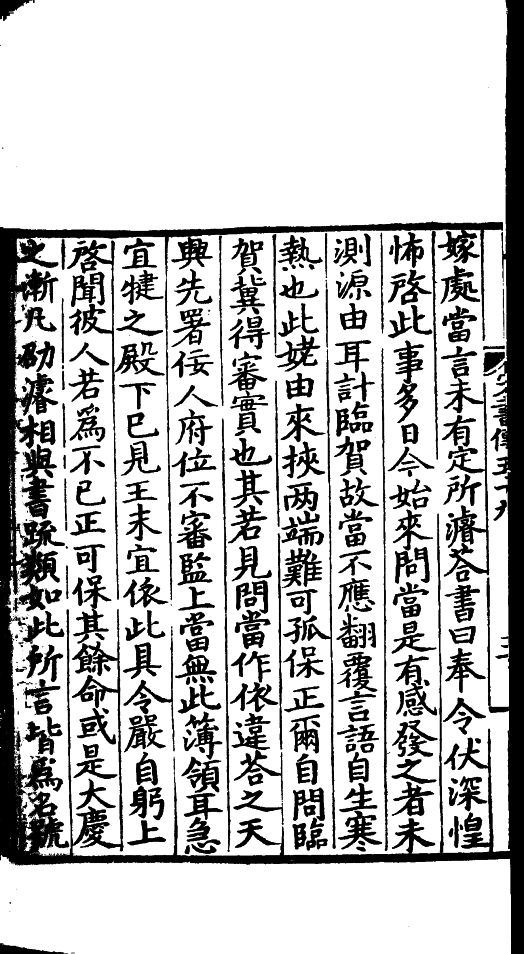 嫁處當言未有定所濬荅書曰奉令伏深惶
怖啓此事多日今始來問當是有感發之者未
測源由耳計臨賀故當不應翻覆言語自生寒
熱也此姥由來挾兩端難可孤保正爾自問臨
賀冀得審實也其若見問當作依違荅之天
興先署佞人府位不審監上當無此簿領耳急
宜犍之殿下已見王未宜依此具令嚴自躬上
啓聞彼人若爲不已正可保其餘命或是大慶
之漸凡劭濬相與書䟽類如此所言皆爲名號